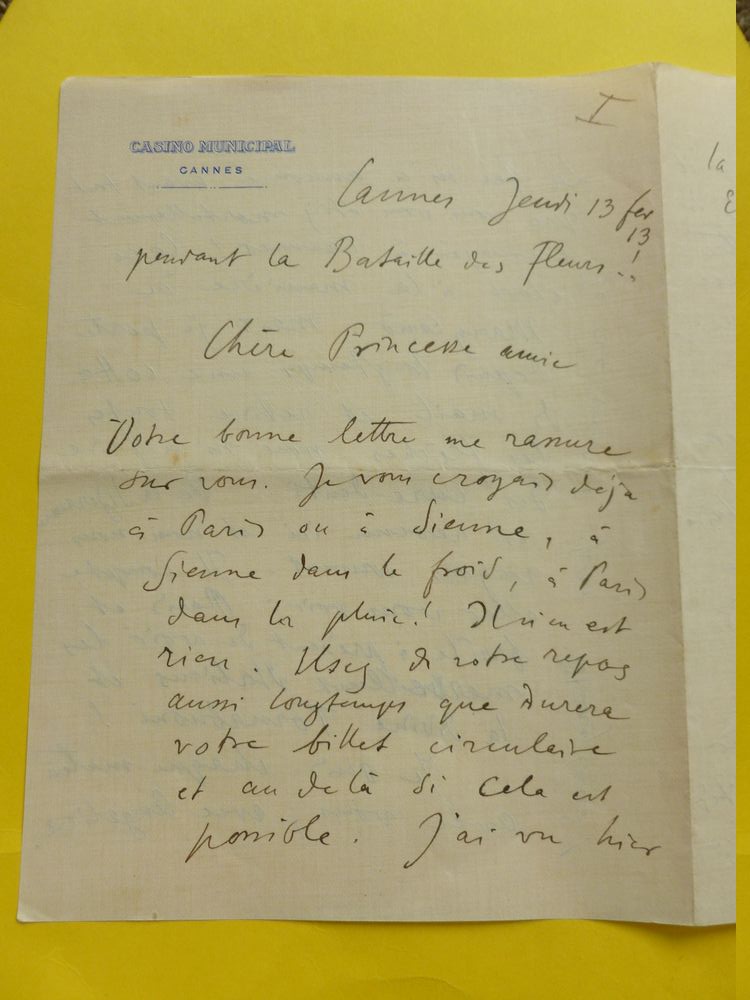 I
CASINO MUNICIPAL
CANNES
Cannes Jeudi 13 fev
13
pendant la Bataille des Fleurs !!
Chère Princesse amie
Votre bonne lettre me rassure
sur vous. Je vous croyais déja
à Paris ou à Sienne, à
Sienne dans le froid, à Paris
dans la pluie ! Il n'en est
rien. Usez de votre repos
aussi longtemps que durera
votre billet circulaire
et au delà si cela est
possible. J'ai vu hier
la